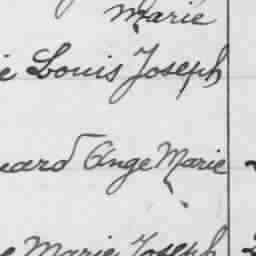 Marie
Louis Joseph
Ange Marie
Marie Joseph